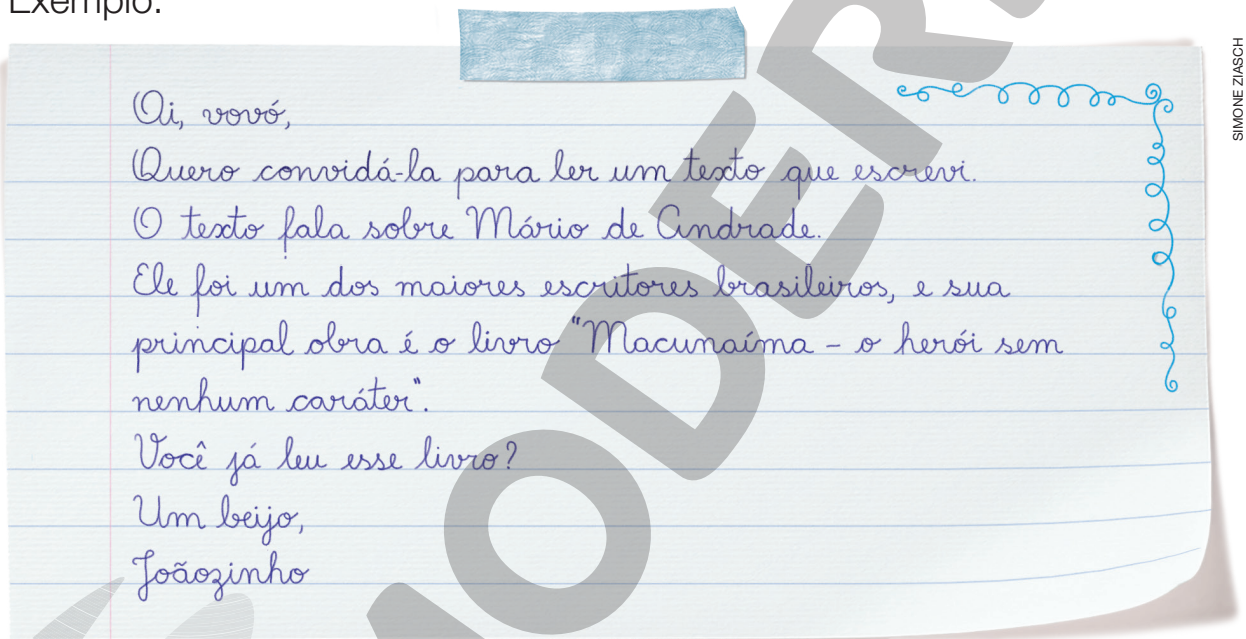 Exemplo:
SIMONE ZIASCH
Oi, vovó,
Quero convidá-la para ler um texto que escrevi.
O texto fala sobre Mário de Andrade.
Ele foi um dos maiores escritores brasileiros, e sua
principal obra é o livro "Macunaíma - o herói sem
nenhum caráter".
Você já leu esse livro?
Um beijo,
Joãozinho
MODER